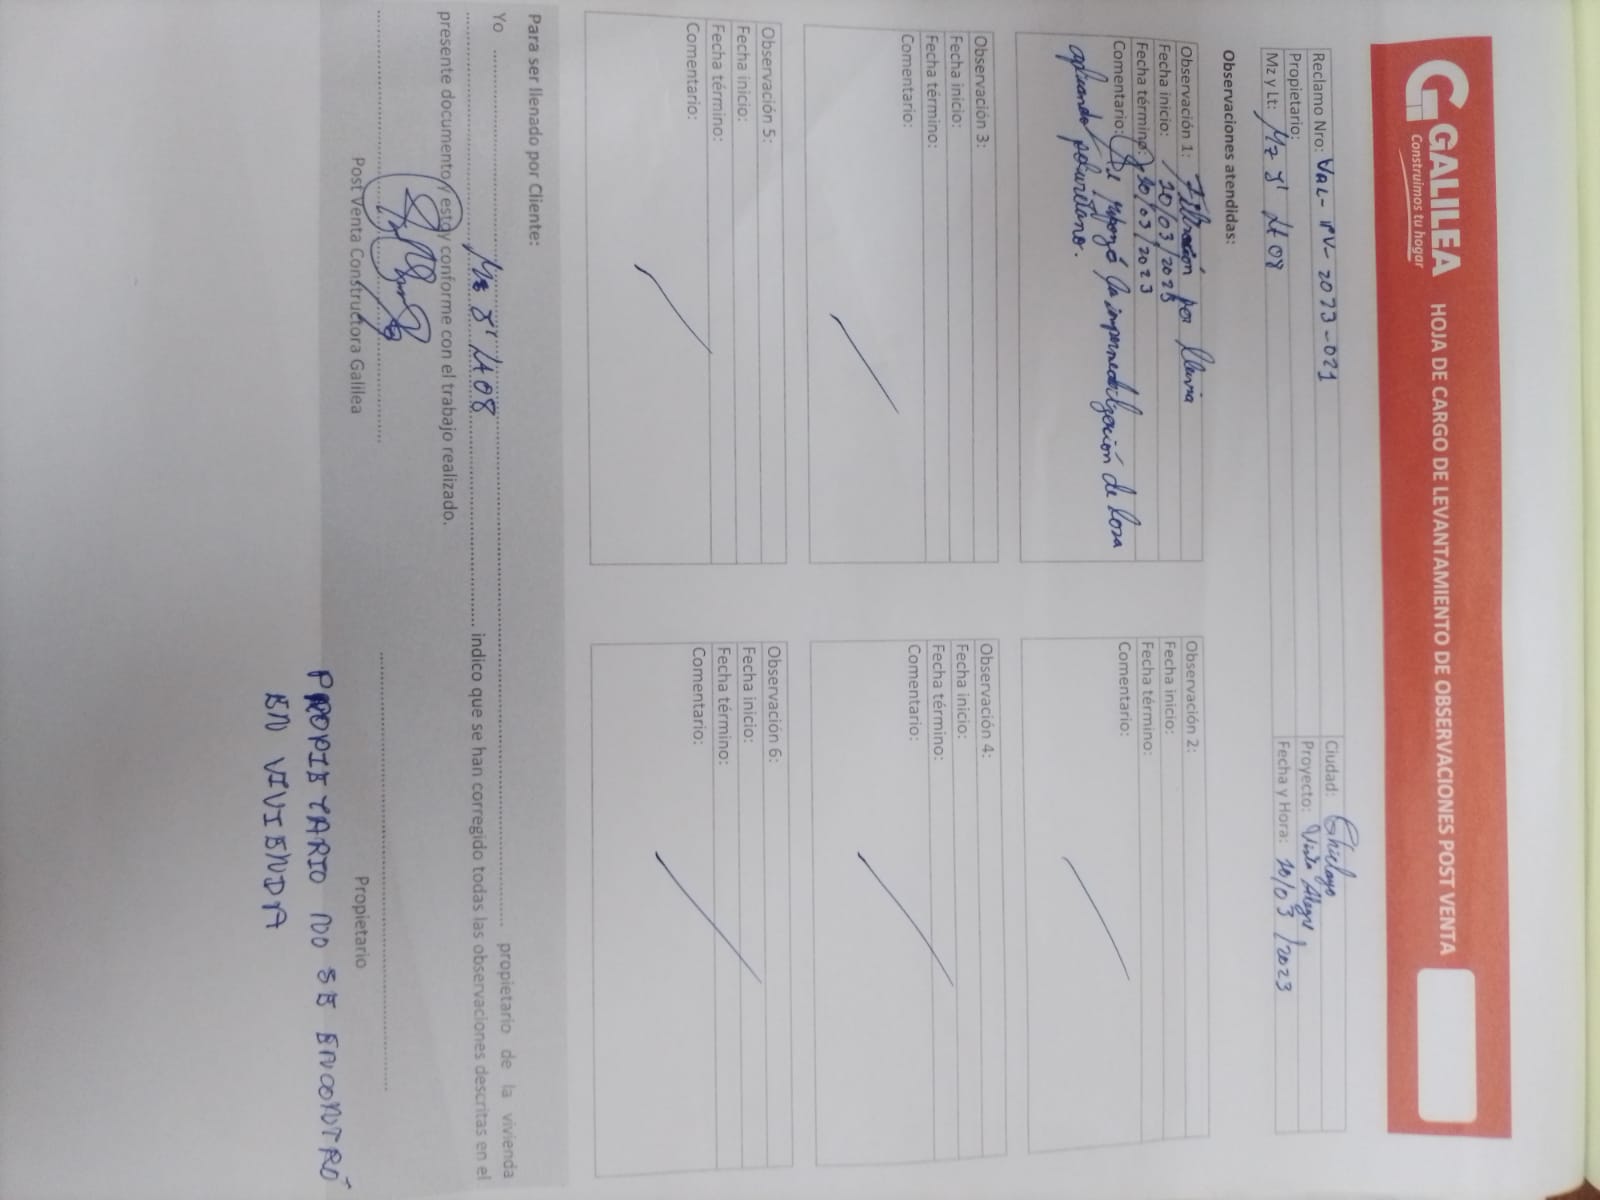 GALILEA
Construimos tu hogar
HOJA DE CARGO DE LEVANTAMIENTO DE OBSERVACIONES POST VENTA
Reclamo Nro: VAL-IPV-2023-021
Ciudad: Chiclayo
Propietario:
Proyecto: Vista Alegre
Mz y Lt: Mz Y' Lt 08
Fecha y Hora: 20/03/2023
Observaciones atendidas:
Observación 1: Filtración por lluvia
Fecha inicio: 20/03/2023
Fecha término: 20/03/2023
Comentario: Se reforzó la impermeabilización de losa
aplicando poliuretano.
Observación 2:
Fecha inicio:
Fecha término:
Comentario:
Observación 3:
Fecha inicio:
Fecha término:
Comentario:
Observación 4:
Fecha inicio:
Fecha término:
Comentario:
Observación 5:
Fecha inicio:
Fecha término:
Comentario:
Observación 6:
Fecha inicio:
Fecha término:
Comentario:
Para ser llenado por Cliente:
Yo ........ propietario de la vivienda
Mz Y' Lt 08 ........ indico que se han corregido todas las observaciones descritas en el
presente documento y estoy conforme con el trabajo realizado.
Post Venta Constructora Galilea
Propietario
PROPIETARIO NO SE ENCONTRÓ
EN VIVIENDA